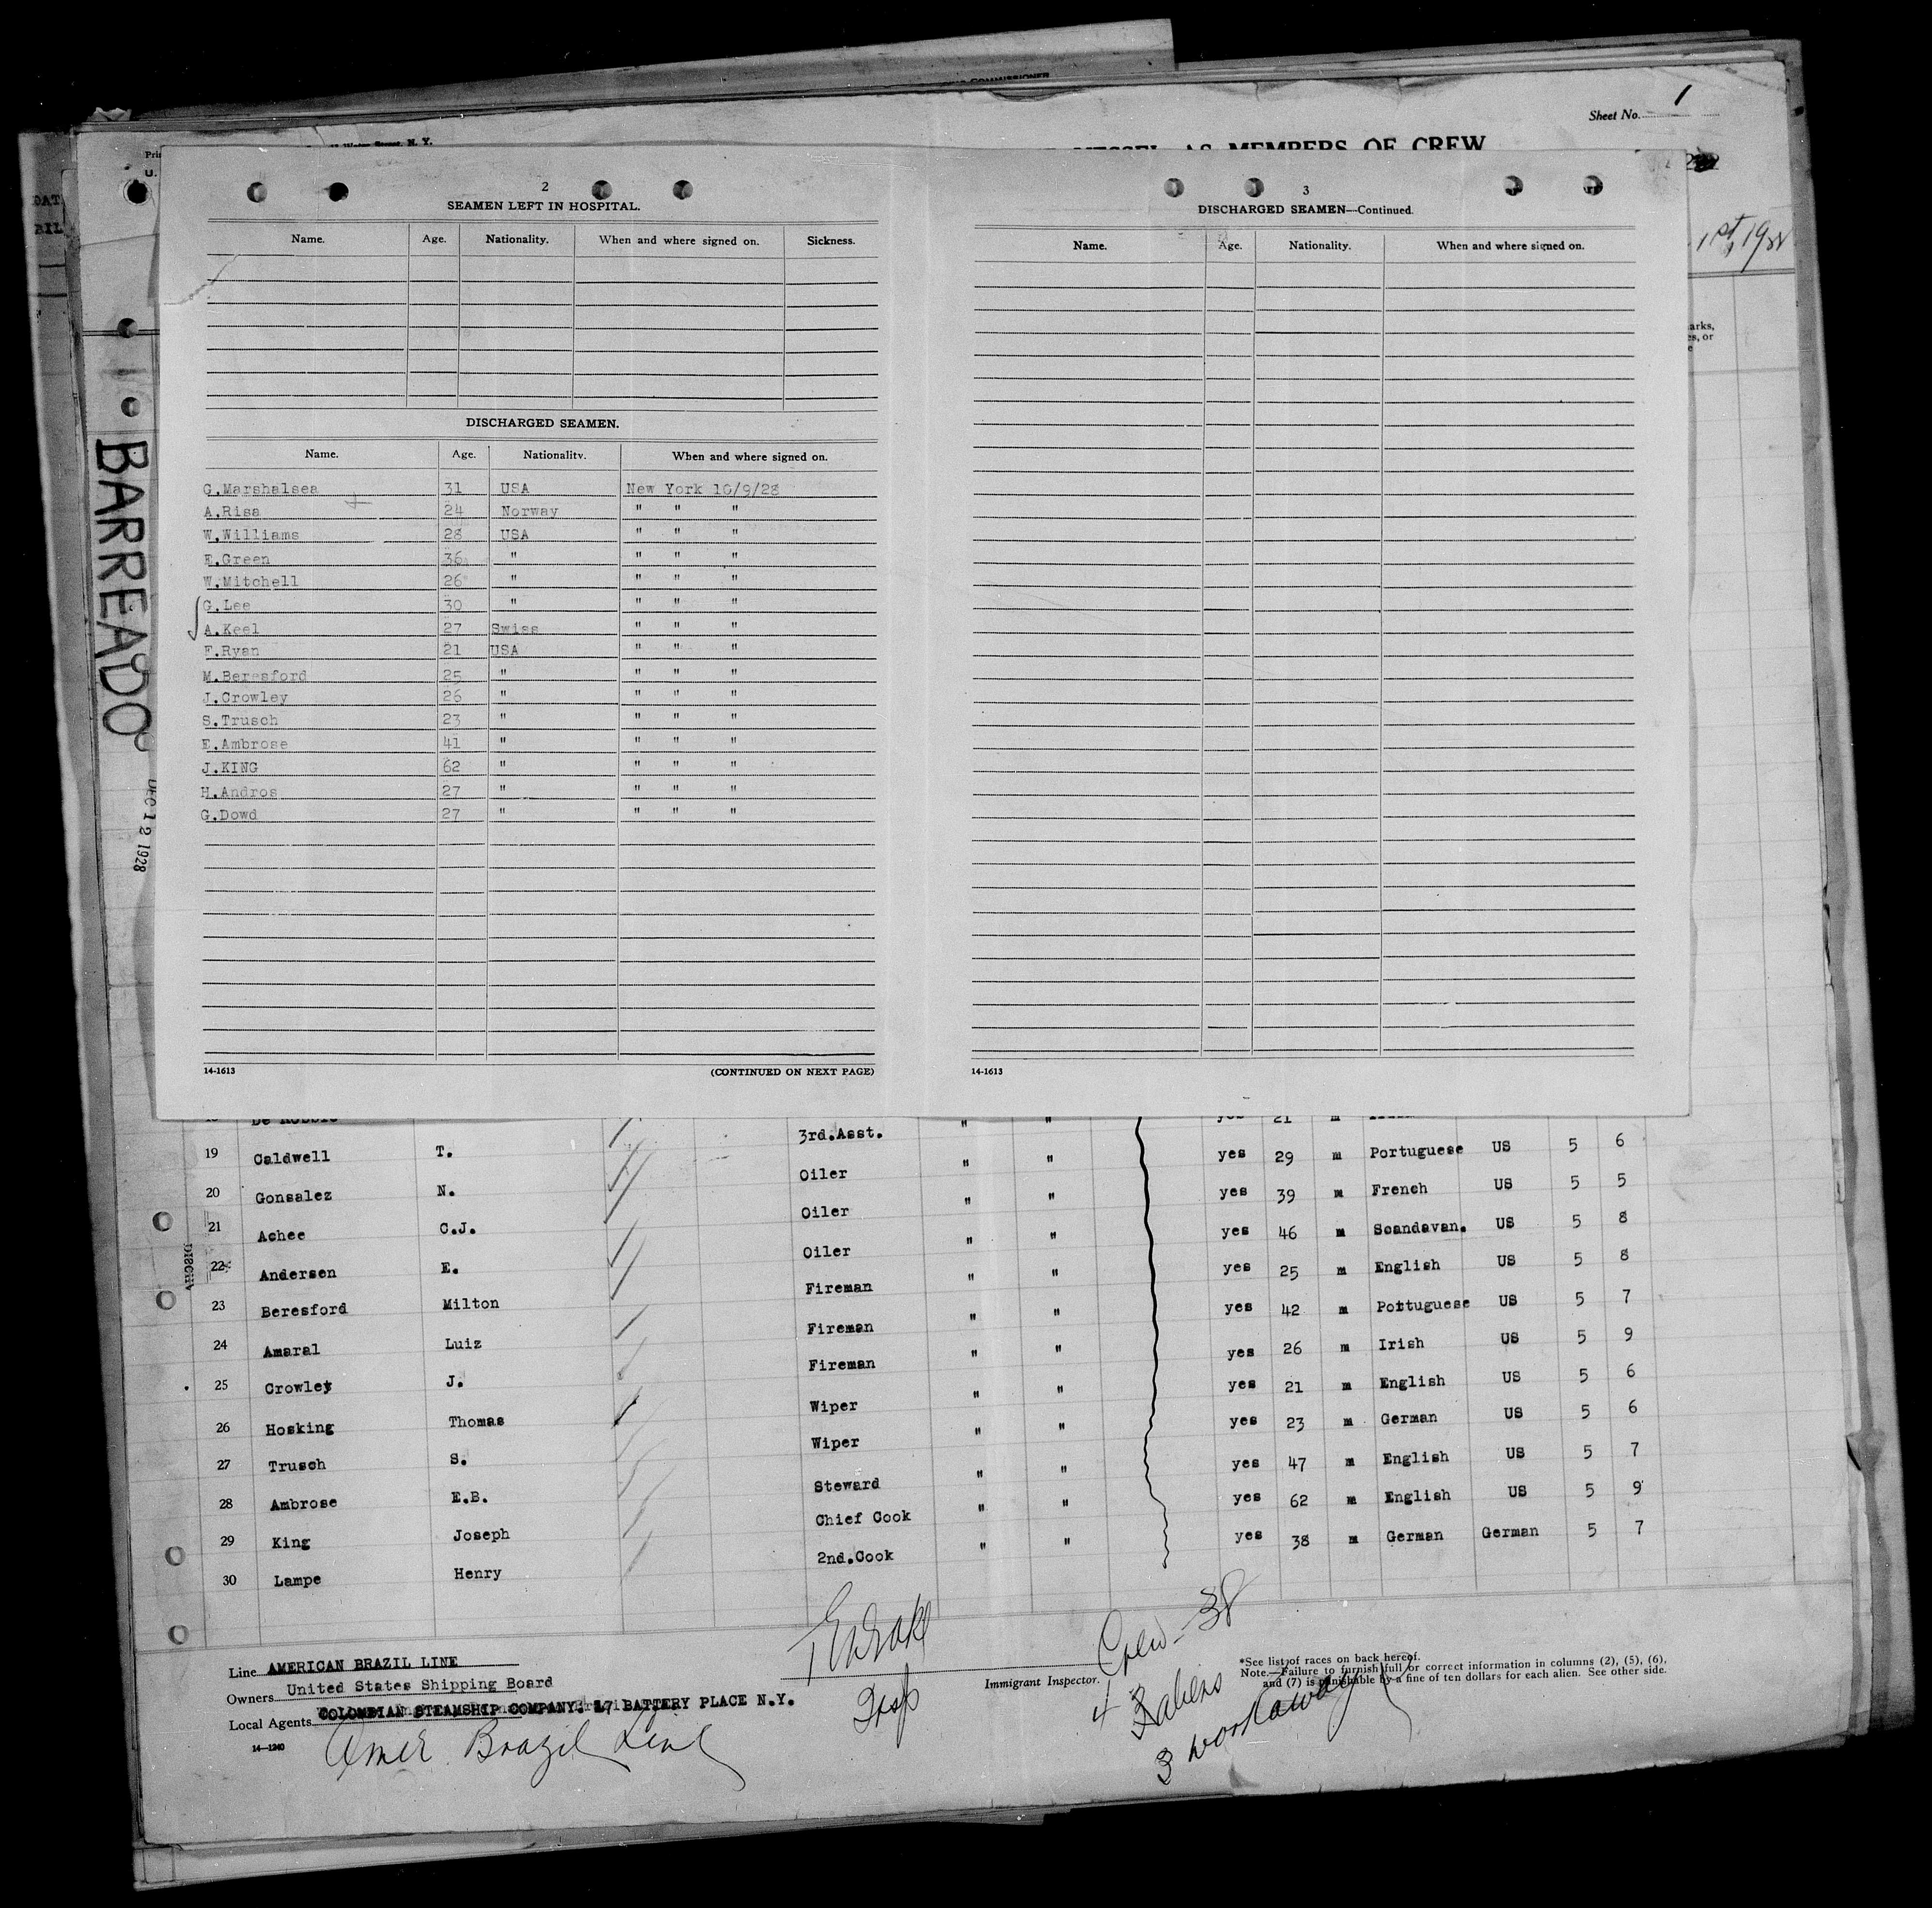 COMMISSIONER
Sheet No. 1
VESSEL AS MEMBERS OF CREW
Water Street, N. Y.
1st, 1928
BARREADO
DEC 12 1928
2
SEAMEN LEFT IN HOSPITAL.
Name. Age. Nationality. When and where signed on. Sickness.
DISCHARGED SEAMEN.
Name. Age. Nationality. When and where signed on.
G.Marshalsea 31 USA New York 10/9/28
A.Risa 24 Norway " " "
W.Williams 28 USA " " "
E.Green 36 " " " "
W.Mitchell 26 " " " "
G.Lee 30 " " " "
A.Keel 27 Swiss " " "
F.Ryan 21 USA " " "
M.Beresford 25 " " " "
J.Crowley 26 " " " "
S.Trusch 23 " " " "
E.Ambrose 41 " " " "
J.KING 62 " " " "
H.Andros 27 " " " "
G.Dowd 27 " " " "
14-1613 (CONTINUED ON NEXT PAGE)
3
DISCHARGED SEAMEN—Continued.
Name. Age. Nationality. When and where signed on.
14-1613
3rd.Asst. " " yes 21 m
19 Caldwell T. Oiler " " yes 29 m Portuguese US 5 6
20 Gonsalez N. Oiler " " yes 39 m French US 5 5
21 Achee C.J. Oiler " " yes 46 m Scandavan. US 5 8
22 Andersen E. Fireman " " yes 25 m English US 5 8
23 Beresford Milton Fireman " " yes 42 m Portuguese US 5 7
24 Amaral Luiz Fireman " " yes 26 m Irish US 5 9
25 Crowley J. Wiper " " yes 21 m English US 5 6
26 Hosking Thomas Wiper " " yes 23 m German US 5 6
27 Trusch S. Steward " " yes 47 m English US 5 7
28 Ambrose E.B. Chief Cook " " yes 62 m English US 5 9
29 King Joseph 2nd.Cook " " yes 38 m German German 5 7
30 Lampe Henry
Line AMERICAN BRAZIL LINE
Owners United States Shipping Board
Local Agents COLOMBIAN STEAMSHIP COMPANY. 17 BATTERY PLACE N.Y.
14—1240
Amer Brazil Line
Insp
Immigrant Inspector.
Crew - 38
4 aliens
3 workaway
*See list of races on back hereof.
Note.—Failure to furnish full or correct information in columns (2), (5), (6),
and (7) is punishable by a fine of ten dollars for each alien. See other side.